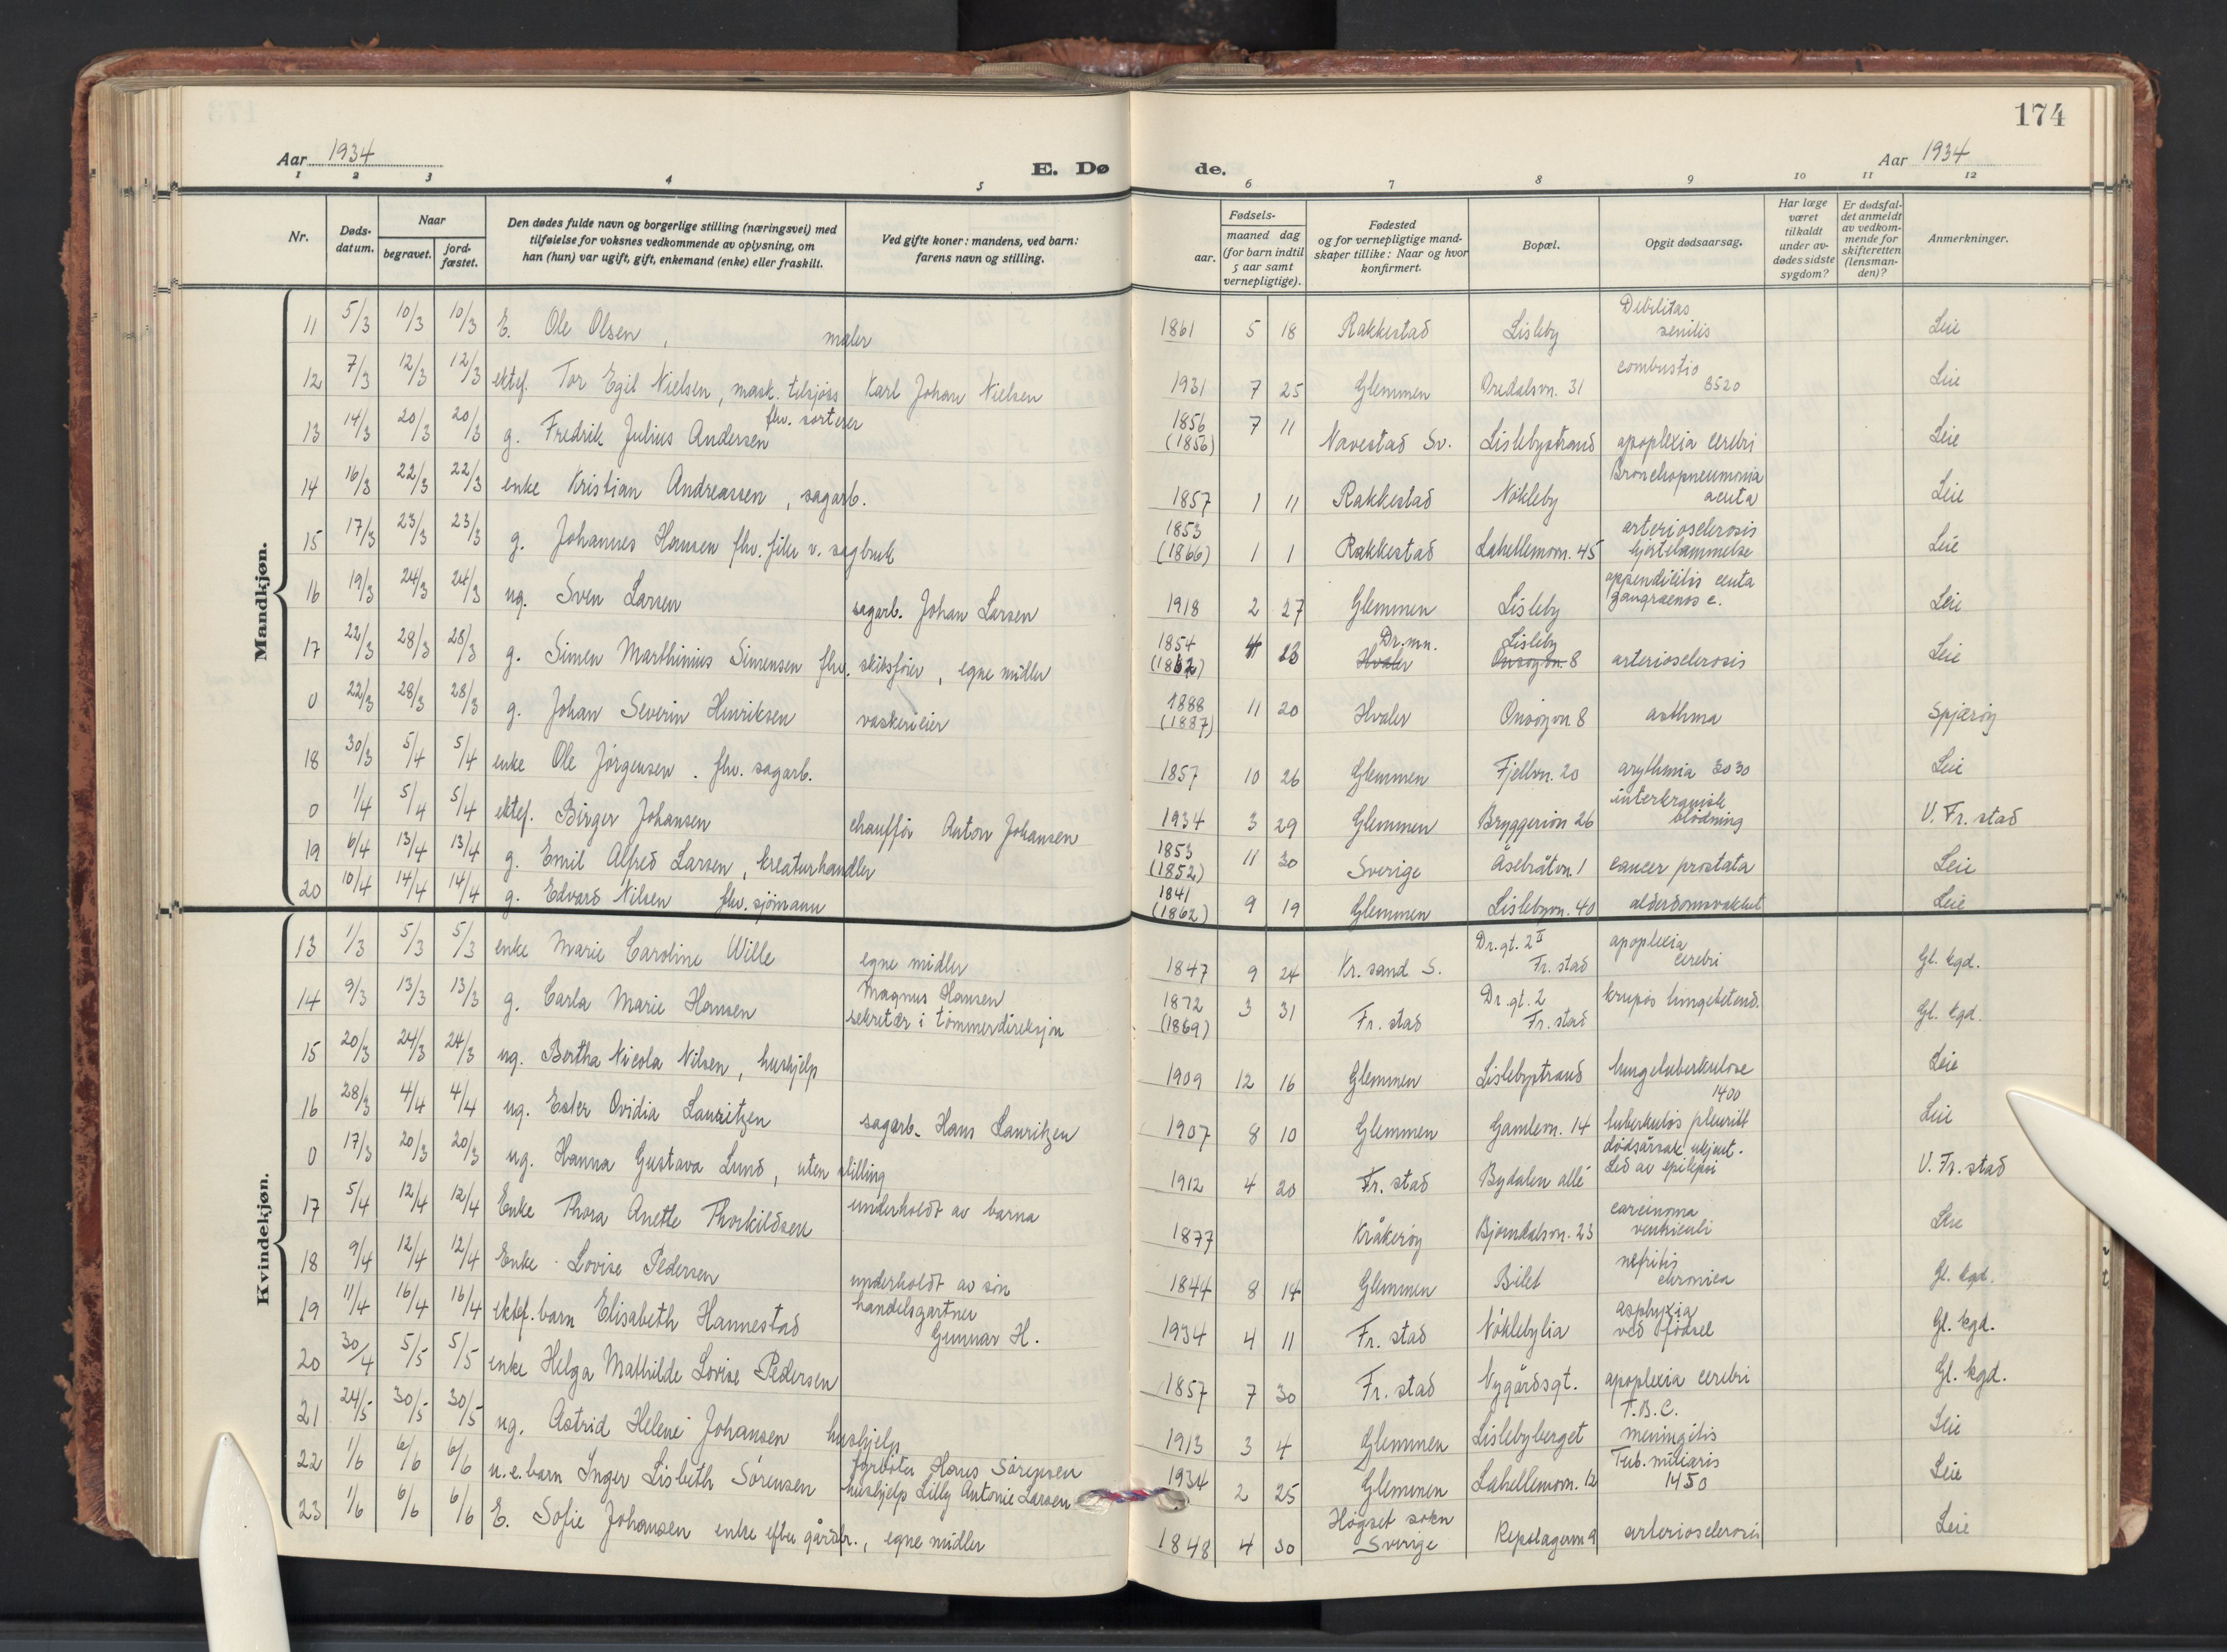 174
Aar 1934
E. Dø de.
Aar 1934
1 2 3 4 5 6 7 8 9 10 11 12
Nr.
Døds-
datum.
Naar
begravet.
jord-
fæstet.
Den dødes fulde navn og borgerlige stilling (næringsvei) med
tilføielse for voksnes vedkommende av oplysning, om
han (hun) var ugift, gift, enkemand (enke) eller fraskilt.
Ved gifte koner: mandens, ved barn:
farens navn og stilling.
Fødsels-
aar.
maaned dag
(for barn indtil
5 aar samt
vernepligtige).
Fødested
og for vernepligtige mand-
skaper tillike: Naar og hvor
konfirmert.
Bopæl.
Opgit dødsaarsag.
Har læge
været
tilkaldt
under av-
dødes sidste
sygdom?
Er dødsfal-
det anmeldt
av vedkom-
mende for
skifteretten
(lensman-
den)?
Anmerkninger.
Mandkjøn.
11 5/3 10/3 10/3 E. Ole Olsen, maler 1861 5 18 Rakkestad Lisleby Debilitas senilis Leie
12 7/3 12/3 12/3 ektef. Tor Egil Nielsen, mask. Karl Johan Nielsen 1931 7 25 Glemmen Oredalsvn. 31 combustio 8520 Leie
13 14/3 20/3 20/3 g. Fredrik Julius Andersen fhv. sorterer 1856 (1856) 7 11 Navestad Sv. Lislebystrand apoplexia cerebri Leie
14 16/3 22/3 22/3 enke Kristian Andreassen, sagarb. 1857 1 11 Rakkestad Nökleby Bronchopneumonia acuta Leie
15 17/3 23/3 23/3 g. Johannes Hansen fhv. filer v. sagbruk 1853 (1866) 1 1 Rakkestad Lahellemovn. 45 arteriosclerosis hjertelammelse Leie
16 19/3 24/3 24/3 ug. Sven Larsen sagarb. Johan Larsen 1918 2 27 Glemmen Lisleby appendicitis acuta gangraenos c. Leie
17 22/3 28/3 28/3 g. Simen Marthinius Simensen fhv. skibsfører, egne midler 1854 4 23 Dr.mn. Hvaler Lisleby Onsøyvn. 8 arteriosclerosis Leie
0 22/3 28/3 28/3 g. Johan Severin Henriksen vaskerieier 1888 (1887) 11 20 Hvaler Onsøyvn. 8 asthma Spjærøy
18 30/3 5/4 5/4 enke Ole Jörgensen. fhv. sagarb. 1857 10 26 Glemmen Fjellvn. 20 arythmia 3030 Leie
0 1/4 5/4 5/4 ektef. Birger Johansen chauffør Anton Johansen 1934 3 29 Glemmen Bryggerivn 26 interkranisk blödning V. Fr. stad
19 6/4 13/4 13/4 g. Emil Alfred Larsen, kreaturhandler 1853 (1852) 11 30 Sverige Åsebråtvn. 1 cancer prostata Leie
20 10/4 14/4 14/4 g. Edvard Nilsen fhv. sjömann 1841 (1862) 9 19 Glemmen Lislebyvn. 40 alderdomsvakhet Leie
Kvindekjøn.
13 1/3 5/3 5/3 enke Marie Caroline Wille egne midler 1847 9 24 Kr. sand S. Dr. gt. 2 II Fr. stad apoplexia cerebri Gl. kgd.
14 9/3 13/3 13/3 g. Carla Marie Hansen Magnus Hansen sekretær i tömmerdireksjon 1872 (1869) 3 31 Fr. stad Dr. gt. 2 Fr. stad krupös lungebetend. Gl. kgd.
15 20/3 24/3 24/3 ug. Bertha Nicola Nilsen, hushjelp 1909 12 16 Glemmen Lislebystrand lungetuberkulose 1400 Leie
16 28/3 4/4 4/4 ug. Ester Ovidia Lauritzen sagarb. Hans Lauritzen 1907 8 10 Glemmen Gamlevn. 14 tuberkulös pleuritt Leie
0 17/3 20/3 20/3 ug. Hanna Gustava Lund, uten stilling 1912 4 20 Fr. stad Bydalen allé dødsårsak ukjent. Led av epilepsi V. Fr. stad
17 5/4 12/4 12/4 Enke Thora Anette Thorkildsen underholdt av barna 1877 Kråkerøy Bjørndalsvn. 23 carcinoma ventriculi Leie
18 9/4 12/4 12/4 Enke Lovise Pedersen underholdt av sön 1844 8 14 Glemmen Bilet nefritis chronica Gl. kgd.
19 11/4 16/4 16/4 ektef. barn Elisabeth Hannestad handelsgartner Gunnar H. 1934 4 11 Fr. stad Nöklebylia asphyxia ved fødsel Gl. kgd.
20 30/4 5/5 5/5 enke Helga Mathilde Lovise Pedersen 1857 7 30 Fr. stad Nygårdsgt. apoplexia cerebri Gl. kgd.
21 24/5 30/5 30/5 ug. Astrid Helene Johansen hushjelp 1913 3 4 Glemmen Lislebyberget T.B.C. meningitis Leie
22 1/6 6/6 6/6 u.e. barn Inger Lisbeth Sörensen Hans Sörensen hushjelp Lilly Antonie Larsen 1934 2 25 Glemmen Lahellemovn. 12 Tub. miliaris 1450 Leie
23 1/6 6/6 6/6 E. Sofie Johansen enke efter gårdbr., egne midler 1848 4 30 Högset sokn Sverige Repslagervn 9 arteriosclerosis Leie